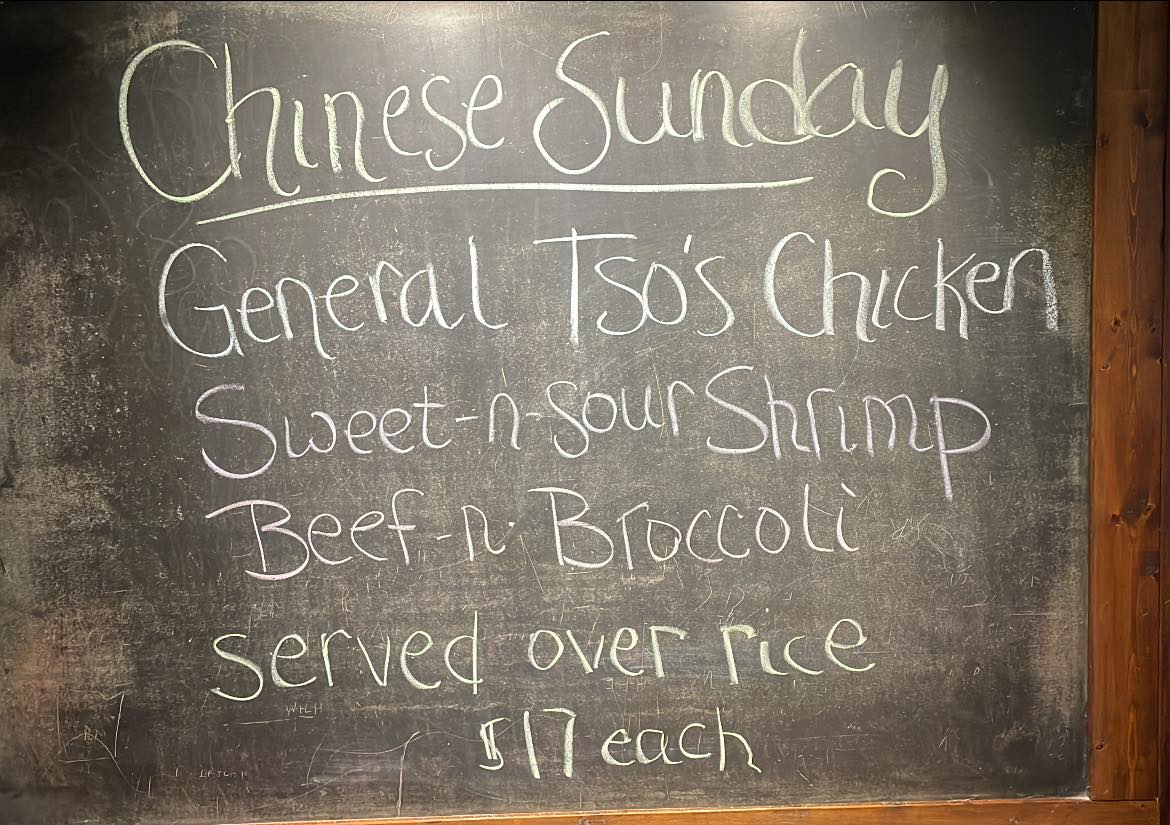 Chinese Sunday
General Tso's Chicken
Sweet-n-sour Shrimp
Beef-n-Broccoli
served over rice
$17 each